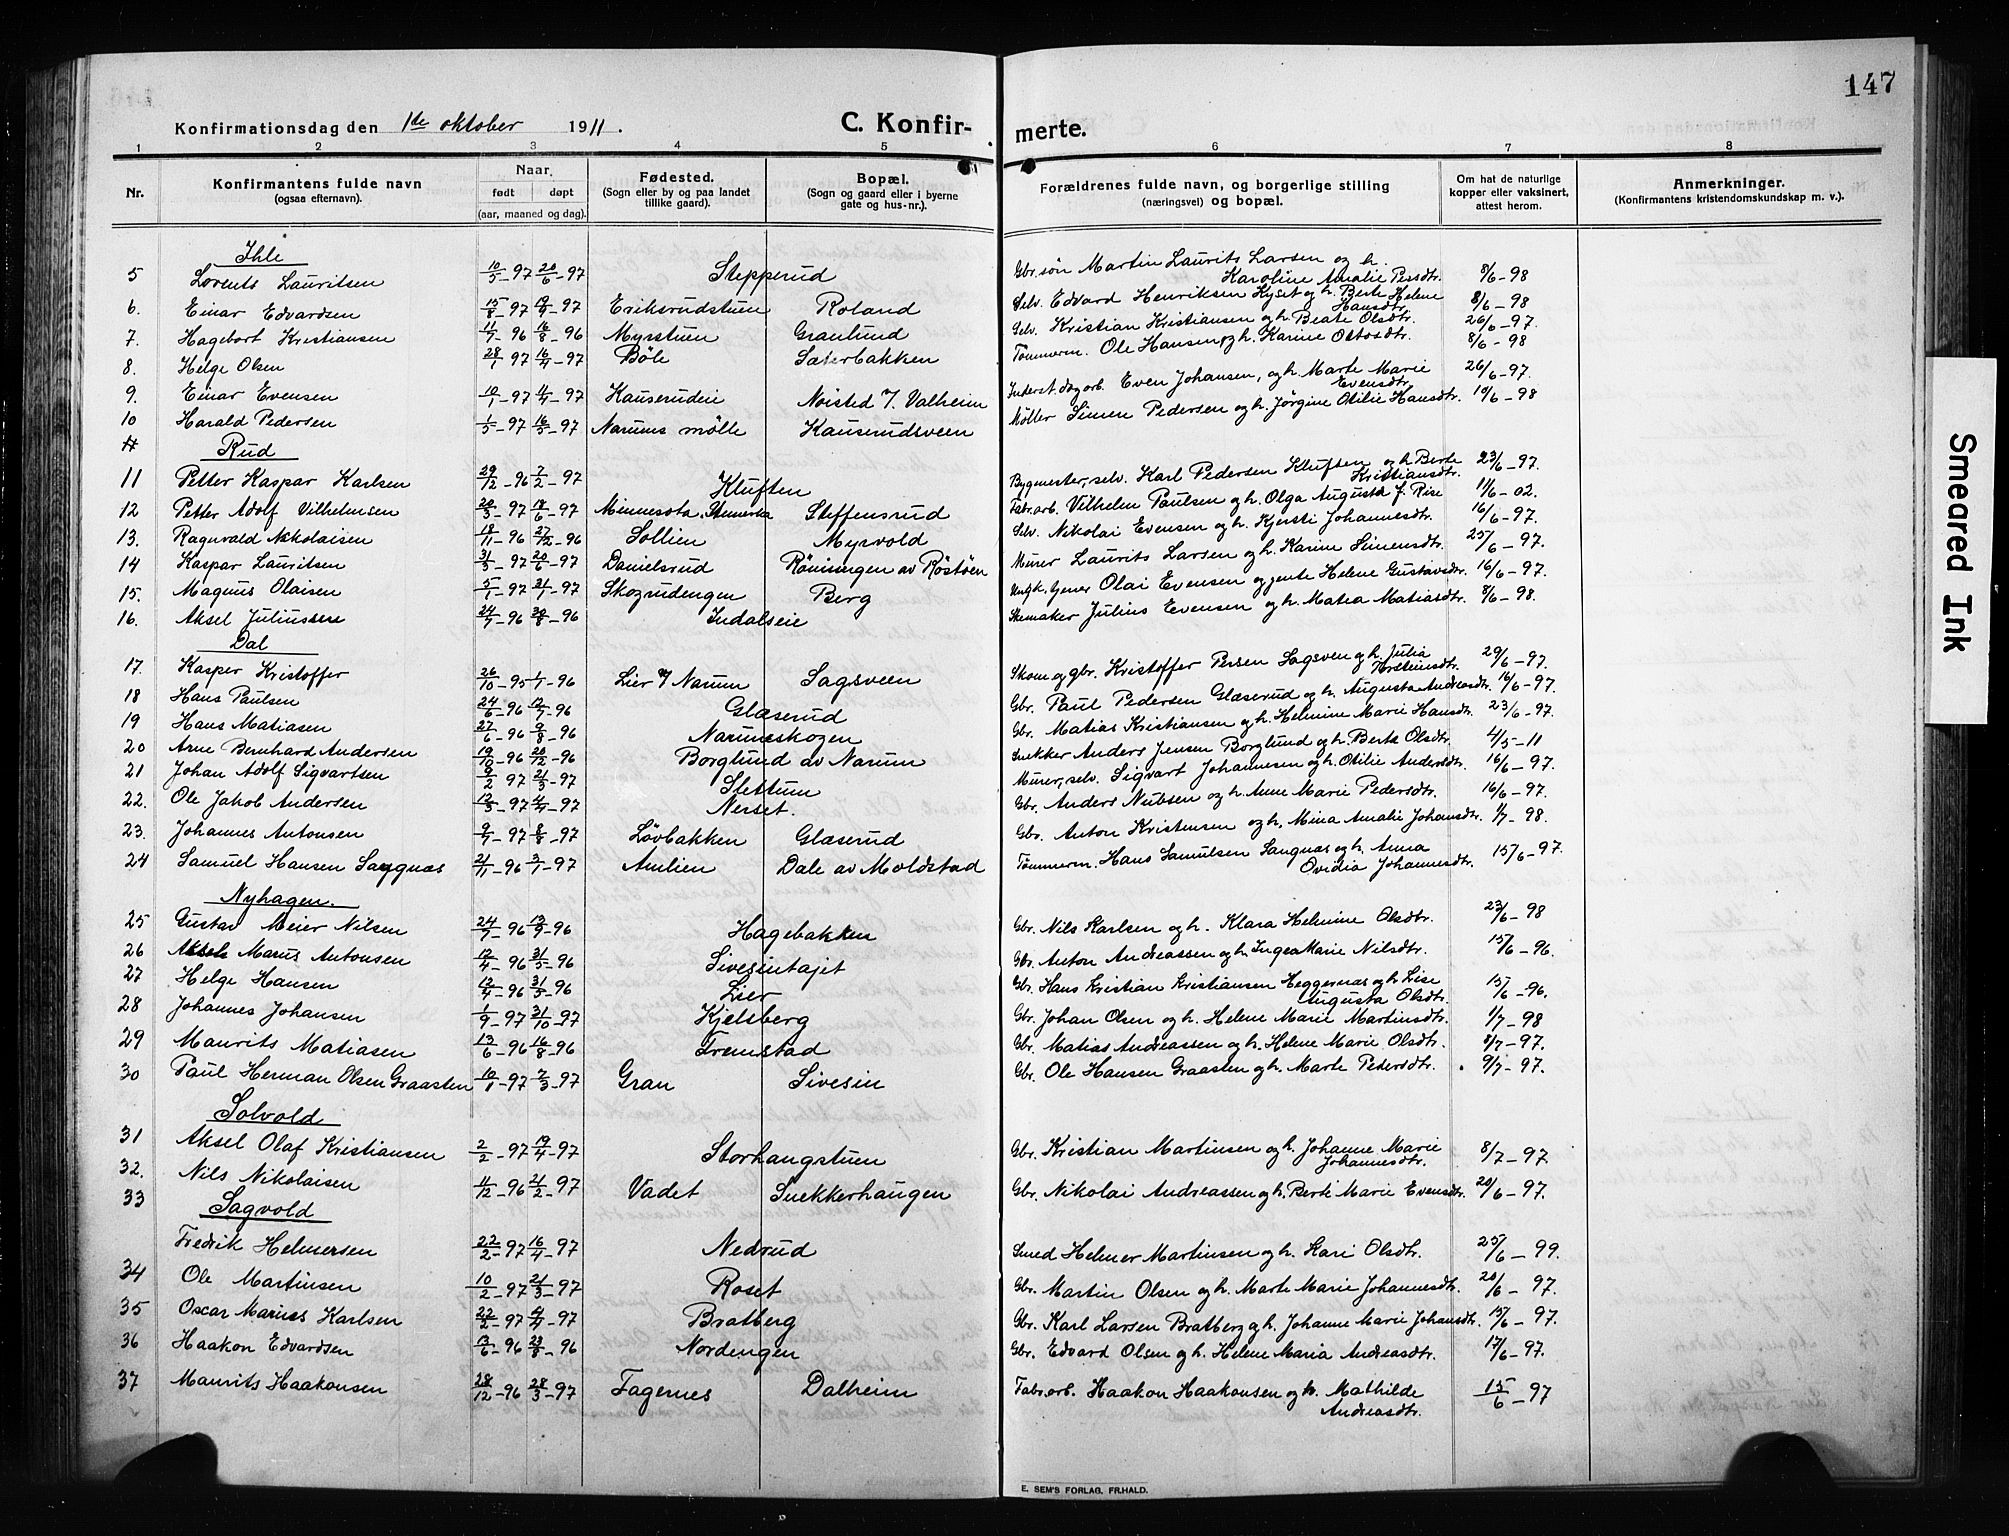 147
Konfirmationsdag den 1ste oktober 1911.
C. Konfir- merte.
1 2 3 4 5 6 7 8
Nr.
Konfirmantens fulde navn (ogsaa efternavn).
Naar født døpt (aar, maaned og dag).
Fødested. (Sogn eller by og paa landet tillike gaard).
Bopæl. (Sogn og gaard eller i byerne gate og hus-nr.).
Forældrenes fulde navn, og borgerlige stilling (næringsvei) og bopæl.
Om hat de naturlige kopper eller vaksinert, attest herom.
Anmerkninger. (Konfirmantens kristendomskundskap m. v.).
Ihle
5 Lorents Lauritsen 10/5-97 20/6-97 Stepperud Gbr.søn Martin Laurits Larsen og h. Karoline Amalie Persdtr. 8/6-98
6. Einar Edvardsen 15/8-97 19/9-97 Eriksrudstuen Roland Selv. Edvard Henriksen Kyset og h. Berte Helene Hansdtr. 8/6-98
7. Hagbart Kristiansen 11/7-96 16/8-96 Myrstuen Granlund Selv. Kristian Kristiansen og h. Beate Olsdtr. 26/6-97.
8. Helge Olsen 28/1 97 16/4-97 Bøle Sæterbakken Tømmerm. Ole Hansen og h. Karine Ottosdtr. 8/6-98
9. Einar Evensen 10/1-97 4/4-97 Kauserudeie Nøisted 7. Valheim Inderst dagarb. Even Johansen, og h. Marte Marie Evensdtr. 26/6-97.
10 Harald Pedersen 1/5-97 16/5-97 Narums mølle Kauserudsveen Møller Simen Pedersen og h. Jørgine Otilie Hansdtr. 10/6-98
Rud
11 Petter Kaspar Karlsen 29/12-96 7/2-97 Kluften Bygmester, selv. Karl Pedersen Kluften og h. Berte Kristiansdtr. 23/6-97.
12 Petter Adolf Vilhelmsen 20/3-97 18/6-97 Minnesota, Amerika Steffensrud Fabr.arb. Vilhelm Paulsen og h. Olga Augusta f. Rise 11/6-02.
13. Ragnvald Nikolaisen 18/11-96 27/12-96 Sollien Myrvold Selv. Nikolai Evensen og h. Kjersti Johannesdtr. 16/6-97.
14 Kaspar Lauritsen 31/5-97 20/6-97 Danielsrud Rønningen av Røstøen Murer Laurits Larsen og h. Karine Simensdtr. 25/6-97.
15. Magnus Olaisen 5/1-97 31/1-97 Skogrudengen Berg Ungk. tjener Olai Evensen og jente Helene Gustavsdtr. 16/6-97.
16. Aksel Juliussen 24/7-96 30/8-96 Indalseie Skomaker Julius Evensen og h. Matea Matiasdtr. 8/6-98.
Dal
17. Kasper Kristoffer 26/10-95 1/1-96 Lier 7 Narum Sagsveen Skom. og gbr. Kristoffer Persen Sagsven og h. Julia Torsteinsdtr. 29/6-97.
18 Hans Paulsen 24/6-96 12/7-96 Glæserud Gbr. Paul Pedersen Glæserud og h. Augusta Andreasdtr. 16/6-97.
19 Hans Matiasen 27/6-96 9/8-96 Narumskogen Gbr. Matias Kristiansen og h. Helmine Marie Hansdtr. 23/6-97.
20 Arne Bernhard Andersen 19/10-96 20/12-96 Borglund av Narum Snekker Anders Jensen Borglund og h. Berte Olsdtr. 4/5-11
21 Johan Adolf Sigvartsen 9/2 97 21/3-97 Slettum Murer, selv. Sigvart Johannesen og h. Otilie Andersdtr. 16/6-97.
22. Ole Jakob Andersen 12/3-97 4/4-97 Nerset. Gbr. Anders Nubsen og h. Anne Marie Pedersdtr. 16/6-97.
23. Johannes Antonsen 9/7-97 8/8-97 Løvbakken Glæserud Gbr. Anton Kristensen og h. Mina Amalie Johansdtr. 1/7-98.
24 Samuel Hansen Saugnæs 21/11-96 3/1-97 Amlien Dale av Moldstad Tømmerm. Hans Samulsen Saugnæs og h. Anna Ovidia Johannesdtr. 15/6-97.
Nyhagen.
25 Gustav Meier Nilsen 24/7-96 13/9-96 Hagebakken Gbr. Nils Karlsen og h. Klara Helmine Olsdtr. 23/6-98
26 Aksel Marius Antonsen 12/4-96 31/5-96 Sivesintajet Gbr. Anton Andreassen og h. Ingea Marie Nilsdtr. 15/6-96.
27 Helge Hansen 12/4-96 31/5-96 Lier Gbr. Hans Kristian Kristiansen Heggernæs og h. Lise Augusta Olsdtr. 15/6-96.
28 Johannes Johansen 1/9-97 31/10-97 Kjelsberg Gbr. Johan Olsen og h. Helene Marie Martinsdtr. 1/7-98
29 Maurits Matiasen 13/6-96 16/8-96 Tremstad Gbr. Matias Andreassen og h. Helene Marie Olsdtr. 8/7-97.
30 Paul Herman Olsen Graasten 10/1-97 7/3-97 Gran Sivesin Gbr. Ole Hansen Graasten og h. Marte Pedersdtr. 9/7-97.
Solvold
31 Aksel Olaf Kristiansen 2/2-97 19/4-97 Storhaugstuen Gbr. Kristian Martinsen og h. Johanne Marie Johannesdtr. 8/7-97
32. Nils Nikolaisen 11/12-96 21/2-97 Vadet Snekkerhaugen Gbr. Nikolai Andreassen og h. Berte Marie Evensdtr. 20/6-97.
Sagvold
33 Fredrik Helmersen 22/2-97 16/4-97 Nedrud Smed Helmer Martinsen og h. Kari Olsdtr. 25/6-99.
34 Ole Martinsen 10/2-97 21/3-97 Roset Gbr. Martin Olsen og h. Marte Marie Johannesdtr. 20/6-97.
35 Oscar Marius Karlsen 22/2-97 4/4-97 Bratberg Gbr. Karl Larsen Bratberg og h. Johanne Marie Johansdtr. 15/6-97.
36 Haakon Edvardsen 13/6-96 23/8-96 Nordengen Gbr. Edvard Olsen og h. Helene Maria Andreasdtr. 17/6-97.
37 Maurits Haakonsen 28/12-96 28/3-97 Fagernes Dalheim Fabr.arb. Haakon Haakonsen og h. Mathilde Andreasdtr. 15/6-97
E. SEM'S FORLAG, FR.HALD.
Smeared Ink